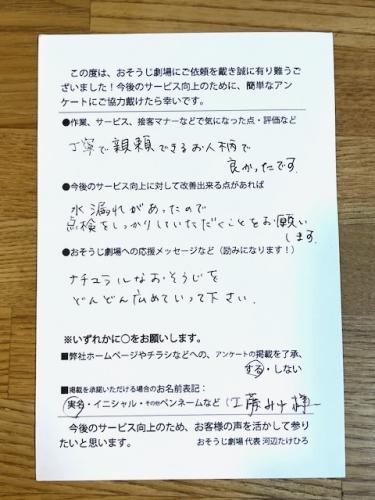 この度は、おそうじ劇場にご依頼を戴き誠に有り難うご
ざいました！今後のサービス向上のために、簡単なアン
ケートにご協力戴けたら幸いです。
●作業、サービス、接客マナーなどで気になった点・評価など
丁寧で親頼できるお人柄で
良かったです。
●今後のサービス向上に対して改善出来る点があれば
水漏れがあったので
点検をしっかりしていただくことをお願い
します。
●おそうじ劇場への応援メッセージなど（励みになります！）
ナチュラルなおそうじを
どんどん広めていって下さい.
※いずれかに○をお願いします。
■弊社ホームページやチラシなどへの、アンケートの掲載を了承、
する・しない
■掲載を承諾いただける場合のお名前表記：
実名・イニシャル・その他ペンネームなど（工藤みゆ様
今後のサービス向上のため、お客様の声を活かして参り
たいと思います。
おそうじ劇場 代表 河辺たけひろ